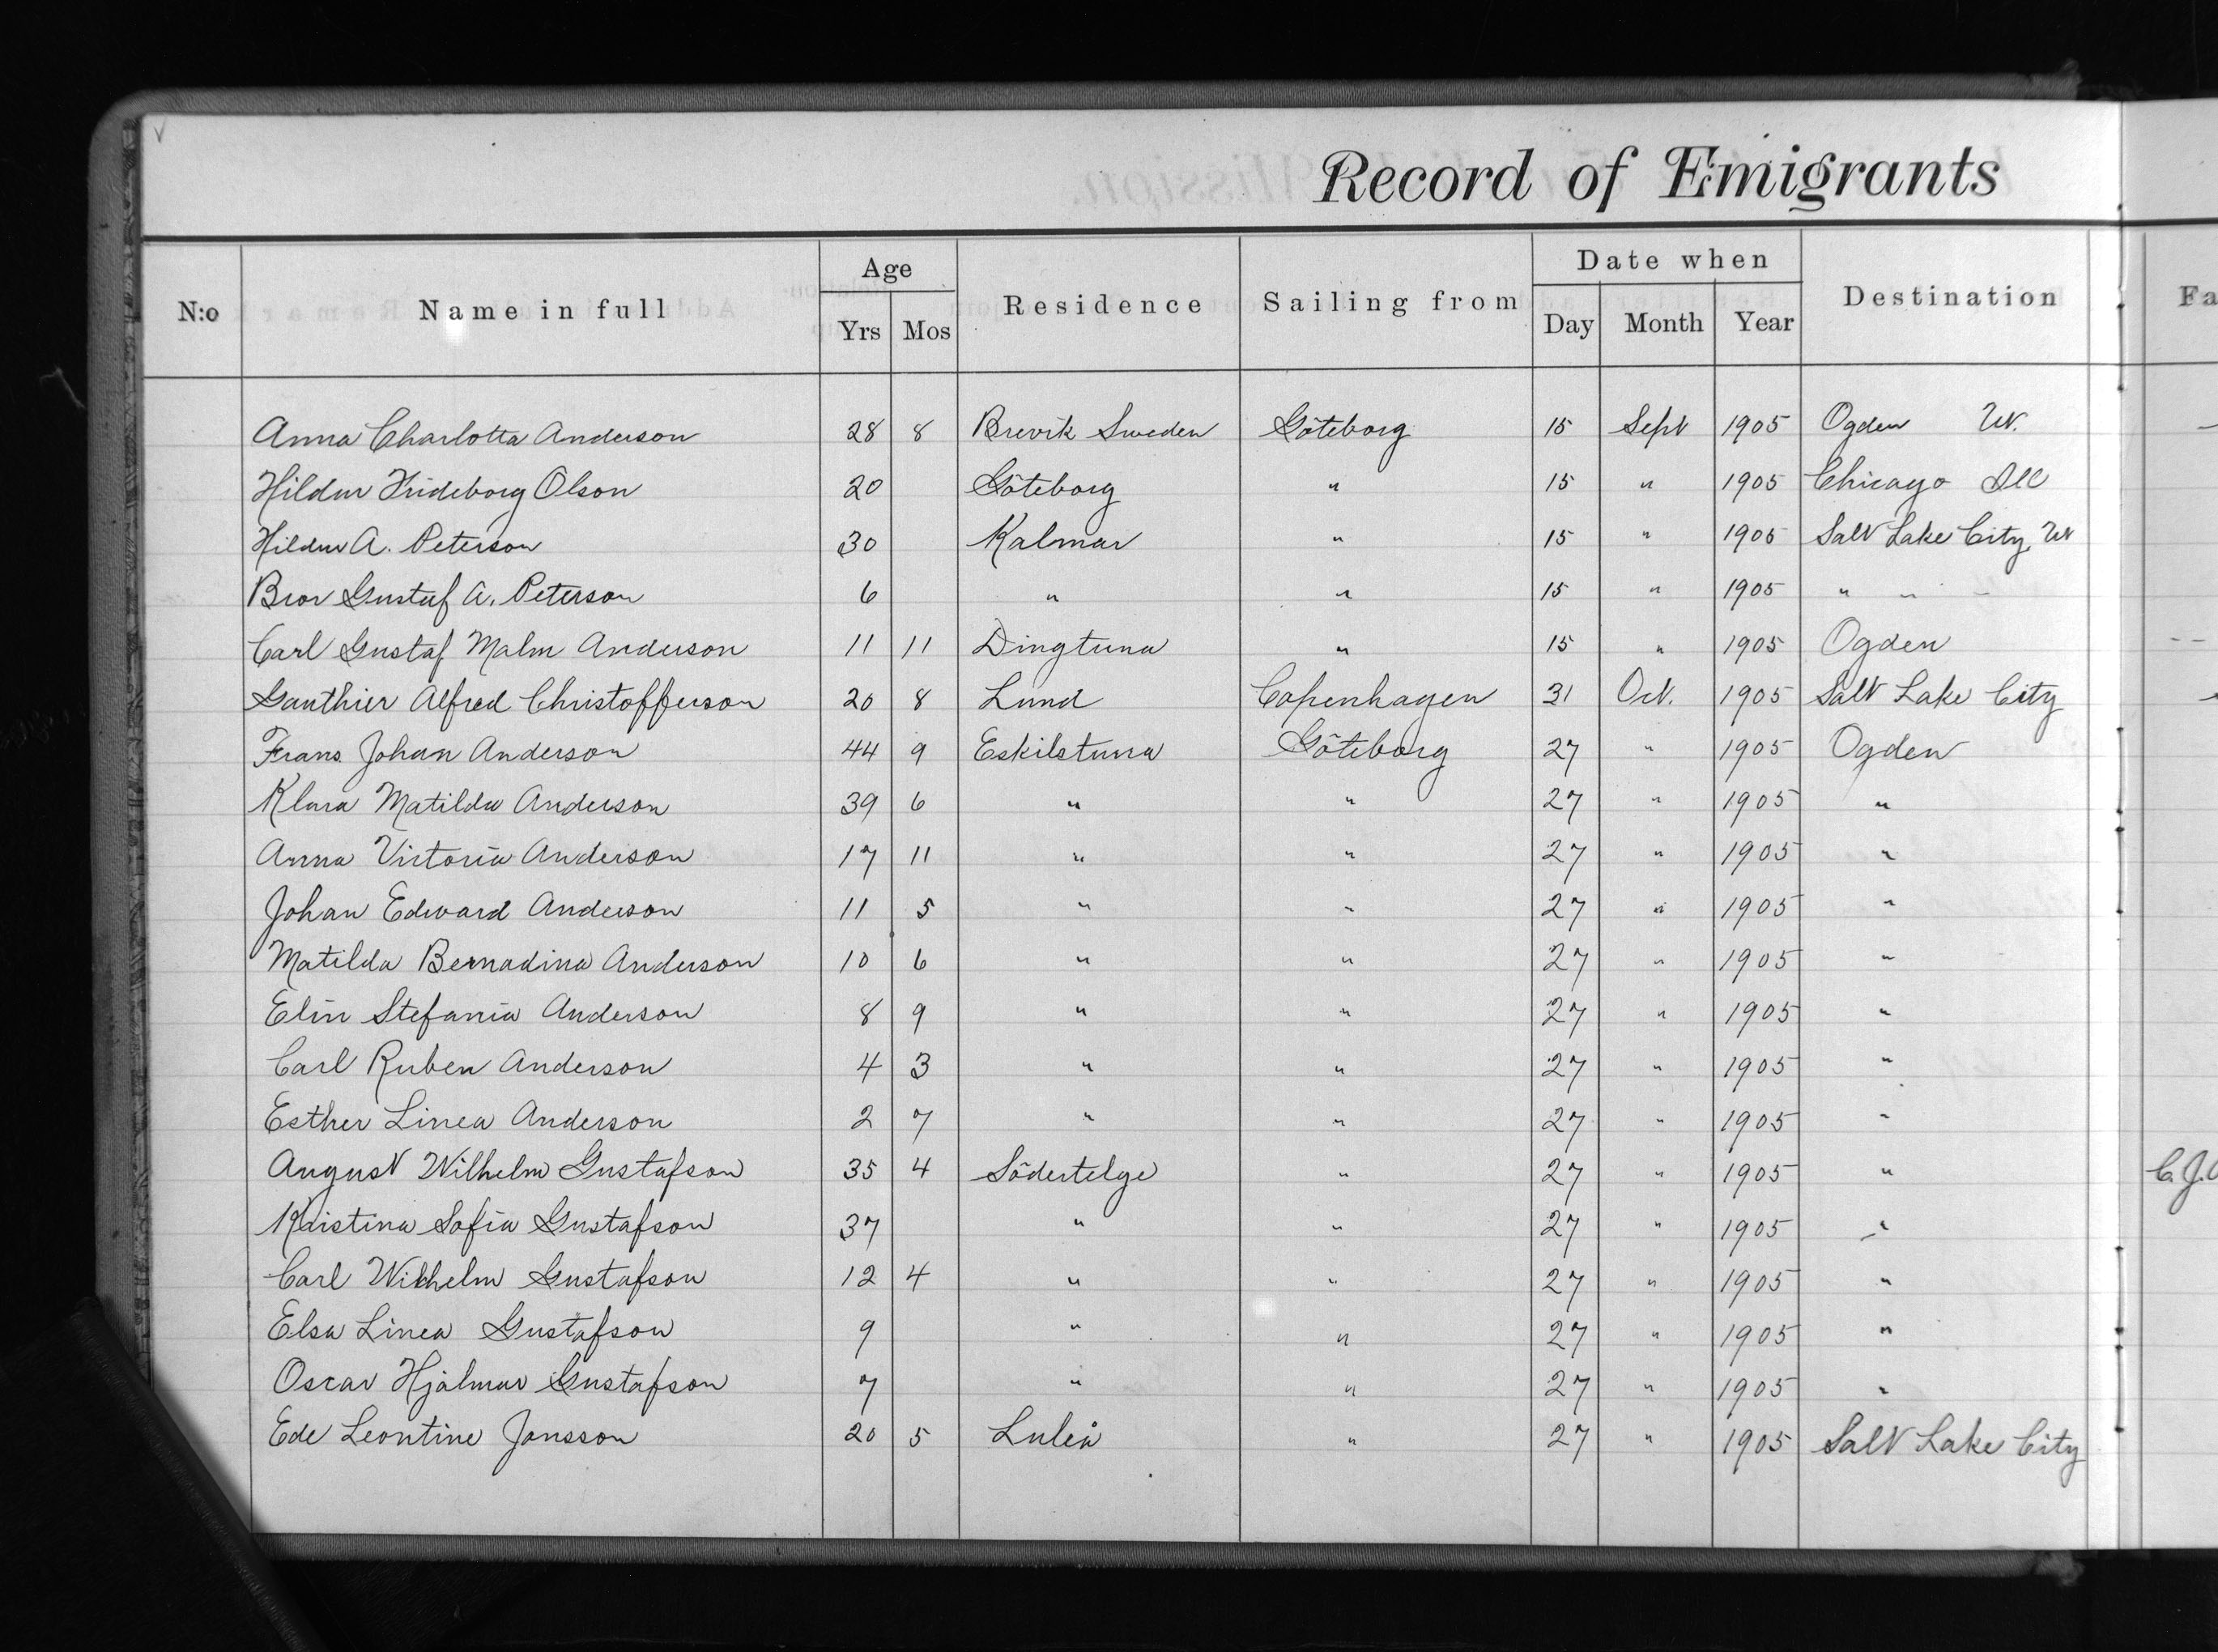 Record of Emigrants
N:o Name in full Age Yrs Mos Residence Sailing from Date when Day Month Year Destination Fa
Anna Charlotta Anderson 28 8 Brevik Sweden Göteborg 15 Sept 1905 Ogden Ut.
Hildur Frideborg Olson 20 Göteborg " 15 " 1905 Chicago Ill
Hildur A. Peterson 30 Kalmar " 15 " 1905 Salt Lake City Ut
Bror Gustaf A. Peterson 6 " " 15 " 1905 " " "
Carl Gustaf Malm Anderson 11 11 Dingtuna " 15 " 1905 Ogden
Gauthier Alfred Christofferson 20 8 Lund Copenhagen 31 Oct. 1905 Salt Lake City
Frans Johan Anderson 44 9 Eskilstuna Göteborg 27 " 1905 Ogden
Klara Matilda Anderson 39 6 " " 27 " 1905 "
Anna Victoria Anderson 17 11 " " 27 " 1905 "
Johan Edward Anderson 11 5 " " 27 " 1905 "
Matilda Bernadina Anderson 10 6 " " 27 " 1905 "
Elin Stefania Anderson 8 9 " " 27 " 1905 "
Carl Ruben Anderson 4 3 " " 27 " 1905 "
Esther Linea Anderson 2 7 " " 27 " 1905 "
August Wilhelm Gustafson 35 4 Södertelge " 27 " 1905 " C.J.
Kristina Sofia Gustafson 37 " " 27 " 1905 "
Carl Wilhelm Gustafson 12 4 " " 27 " 1905 "
Elsa Linea Gustafson 9 " " 27 " 1905 "
Oscar Hjalmar Gustafson 7 " " 27 " 1905 "
Ede Leontine Jonsson 20 5 Luleå " 27 " 1905 Salt Lake City